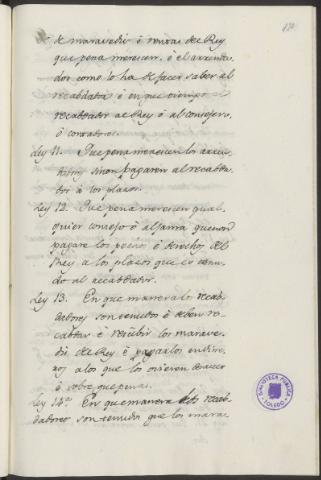 de maravedis ó rentas del Rey
que pena merescen. ó el arrenda-
dor como lo ha de facer saber al
recabdador ó en que tiempo el
recabdador al Rey ó al consejero,
ó contadores.
Ley 11. Que pena merescen los arren-
dadores sinon pagaren al recabda-
dor á los plazos.
Ley 12. Que pena merescen qual-
quier concejo ó aljama que non
pagare los pechos ó derechos del
Rey a los plazos que es tenu-
do al recabdador.
Ley 13. En que manera los recab-
dadores son tenudos ó deben re-
cabdar é recibir los marave-
dis del Rey é pagarlos en dine-
ros á los que los ovieren de aver
é sobre que penas.
Ley 14.ª En que manera los recab-
dadores son tenudos que los mara-
BIBLIOTECA PÚBLICA
TOLEDO